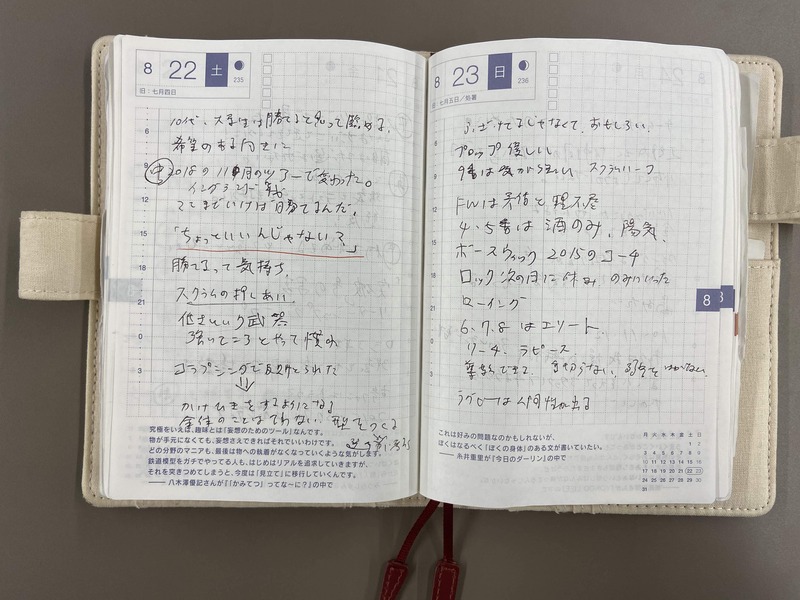 8 22 土
235
旧:七月四日
10代、大学生は勝てると思って臨める。
希望のある向きに
中 2018の11月のツアーで変わった。
イングランド戦
ここまでいけば勝てるんだ。
「ちょっといいんじゃない?」
勝てるって気持ち。
スクラムの押しあい。
低さという武器
強いところとやって慣れ
コラプシングで反則とられた
⇓
かけひきをするようになる
全体のことはてわない 型をつくる
究極をいえば、趣味とは「妄想のためのツール」なんです。
物が手元になくても、妄想さえできればそれでいいわけです。
どの分野のマニアも、最後は物への執着がなくなっていくような気がします。
鉄道模型をガチでやってる人も、はじめはリアルを追求していきますが、
それを突きつめてしまうと、今度は「見立て」に移行していくんです。
―― 八木澤優記さんが『「かみてつ」ってなーに?』の中で
6
9
12
15
18
21
0
3
8 23 日
236
旧:七月五日/処暑
ふざけてるじゃなくて、おもしろい。
プロップ 優しい
9番は気が強い スクラムハーフ
FWは矛盾と理不尽
4、5番は酒のみ、陽気。
ボースウィック 2015のコーチ
ロック 次の日に休み のみにいった
ローイング
6.7.8はエリート。
リーチ、ラピース
ラグビーは人間性が出る
これは好みの問題なのかもしれないが、
ぼくはなるべく「ぼくの身体」のある文が書いていたい。
―― 糸井重里が『今日のダーリン』の中で
6
9
12
15
18
21
0
3
月 火 水 木 金 土 日
1 2
3 4 5 6 7 8 9
10 11 12 13 14 15 16
17 18 19 20 21 22 23
24 25 26 27 28 29 30
31
8